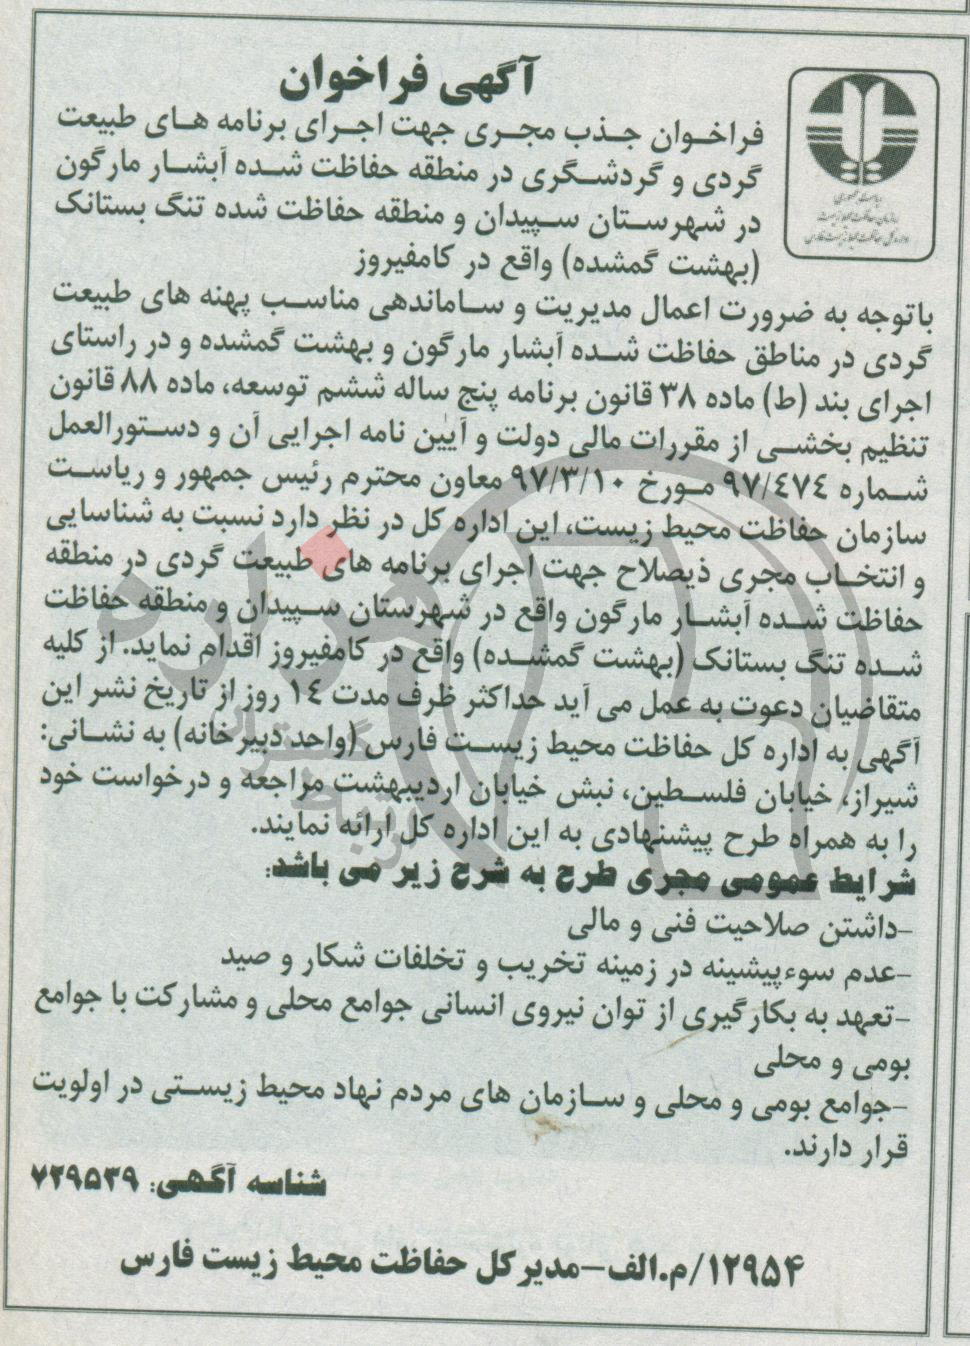 آگهی فراخوان
فراخوان جذب مجری جهت اجرای برنامه های طبیعت
گردی و گردشگری در منطقه حفاظت شده آبشار مارگون
در شهرستان سپیدان و منطقه حفاظت شده تنگ بستانک
(بهشت گمشده) واقع در کامفیروز
ریاست جمهوری
سازمان حفاظت محیط زیست
اداره کل حفاظت محیط زیست فارس
باتوجه به ضرورت اعمال مدیریت و ساماندهی مناسب پهنه های طبیعت
گردی در مناطق حفاظت شده آبشار مارگون و بهشت گمشده و در راستای
اجرای بند (ط) ماده ۳۸ قانون برنامه پنج ساله ششم توسعه، ماده ۸۸ قانون
تنظیم بخشی از مقررات مالی دولت و آیین نامه اجرایی آن و دستورالعمل
شماره ۹۷/٤٧٤ مورخ ۹۷/۳/۱۰ معاون محترم رئیس جمهور و ریاست
سازمان حفاظت محیط زیست، این اداره کل در نظر دارد نسبت به شناسایی
و انتخاب مجری ذیصلاح جهت اجرای برنامه های طبیعت گردی در منطقه
حفاظت شده آبشار مارگون واقع در شهرستان سپیدان و منطقه حفاظت
شده تنگ بستانک (بهشت گمشده) واقع در کامفیروز اقدام نماید. از کلیه
متقاضیان دعوت به عمل می آید حداکثر ظرف مدت ١٤ روز از تاریخ نشر این
آگهی به اداره کل حفاظت محیط زیست فارس (واحد دبیرخانه) به نشانی:
شیراز، خیابان فلسطین، نبش خیابان اردیبهشت مراجعه و درخواست خود
را به همراه طرح پیشنهادی به این اداره کل ارائه نمایند.
شرایط عمومی مجری طرح به شرح زیر می باشد:
-داشتن صلاحیت فنی و مالی
-عدم سوءپیشینه در زمینه تخریب و تخلفات شکار و صید
-تعهد به بکارگیری از توان نیروی انسانی جوامع محلی و مشارکت با جوامع
بومی و محلی
-جوامع بومی و محلی و سازمان های مردم نهاد محیط زیستی در اولویت
قرار دارند.
شناسه آگهی: ۷۲۹۵۳۹
۱۲۹۵۴/م.الف-مدیر کل حفاظت محیط زیست فارس